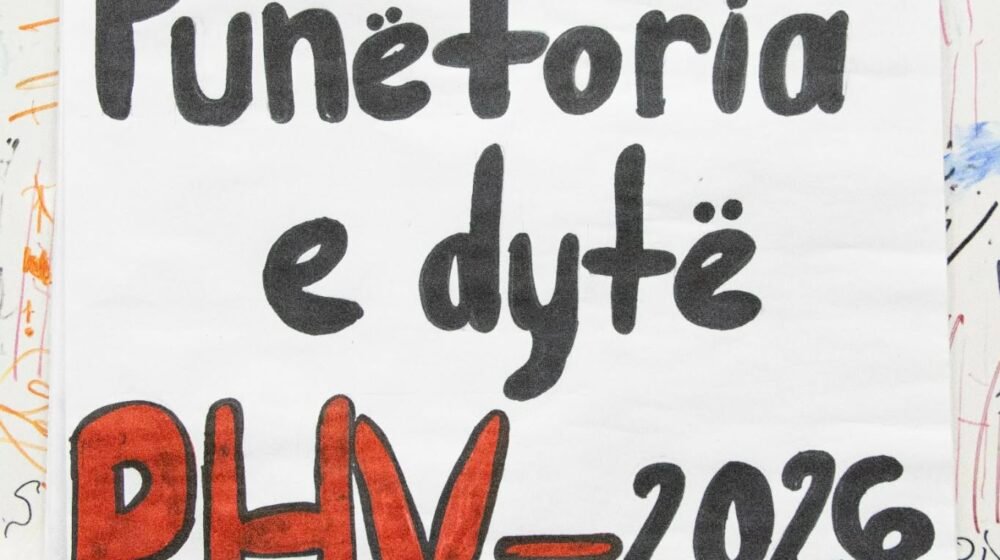 Punëtoria
e dytë
PHV-2026